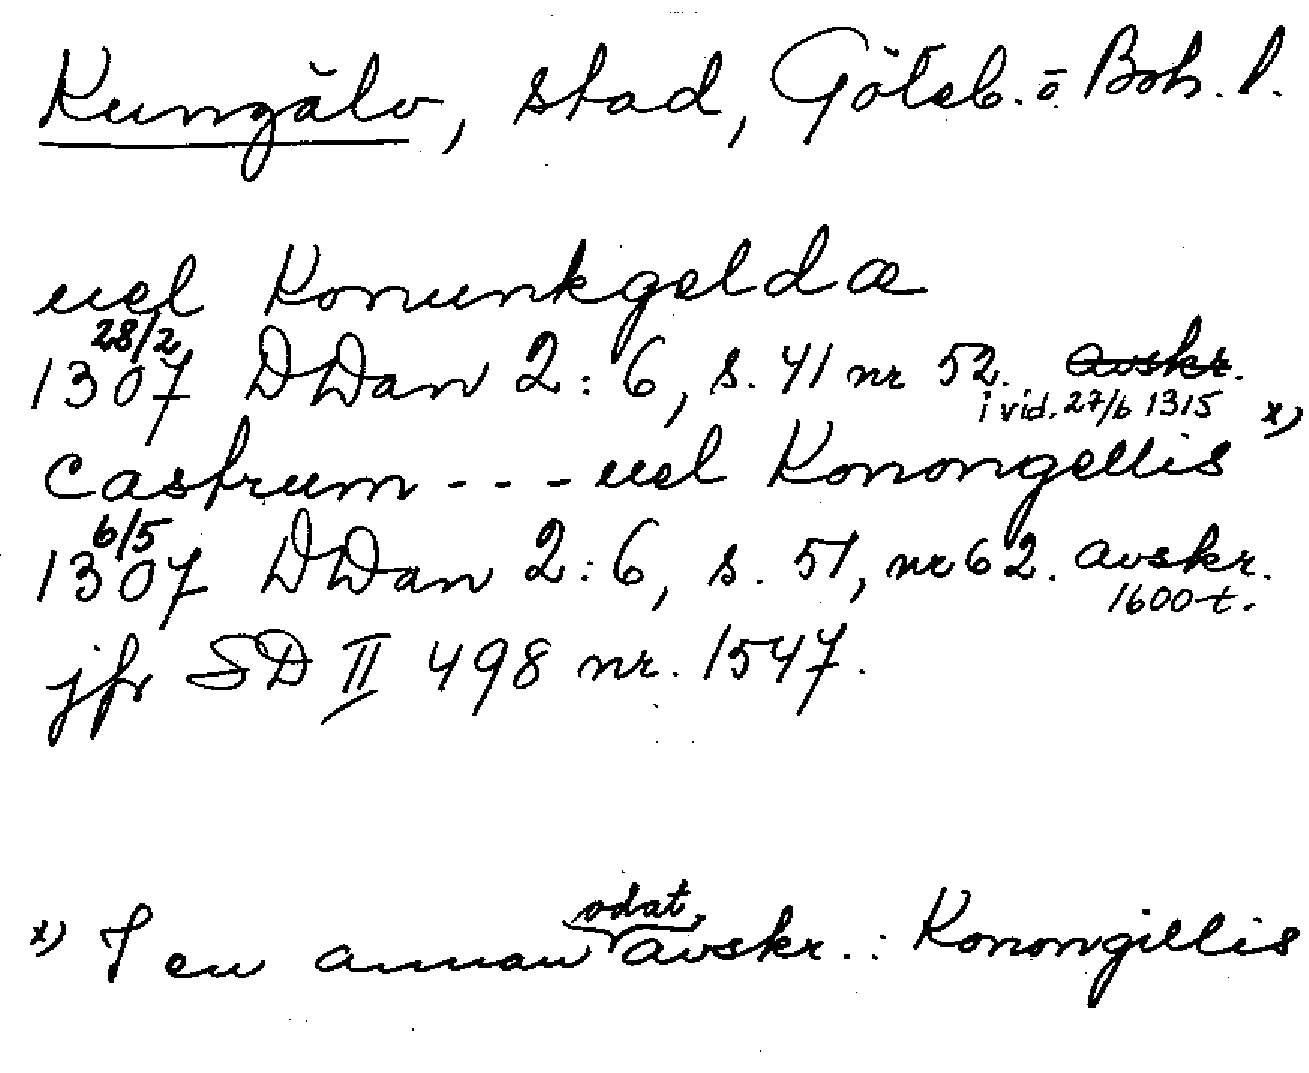 Kungälv, stad, Göteb. o. Boh. l.
uel Konunkgeldæ
28/2
1307 DDan 2:6, s. 41 nr 52. avskr.
i vid. 27/6 1315
castrum - - - uel Konongellis x)
6/5
1307 DDan 2:6, s. 51, nr 62. avskr.
1600-t.
jfr SD II 498 nr. 1547.
x) I en annan odat. avskr.: Konongillis